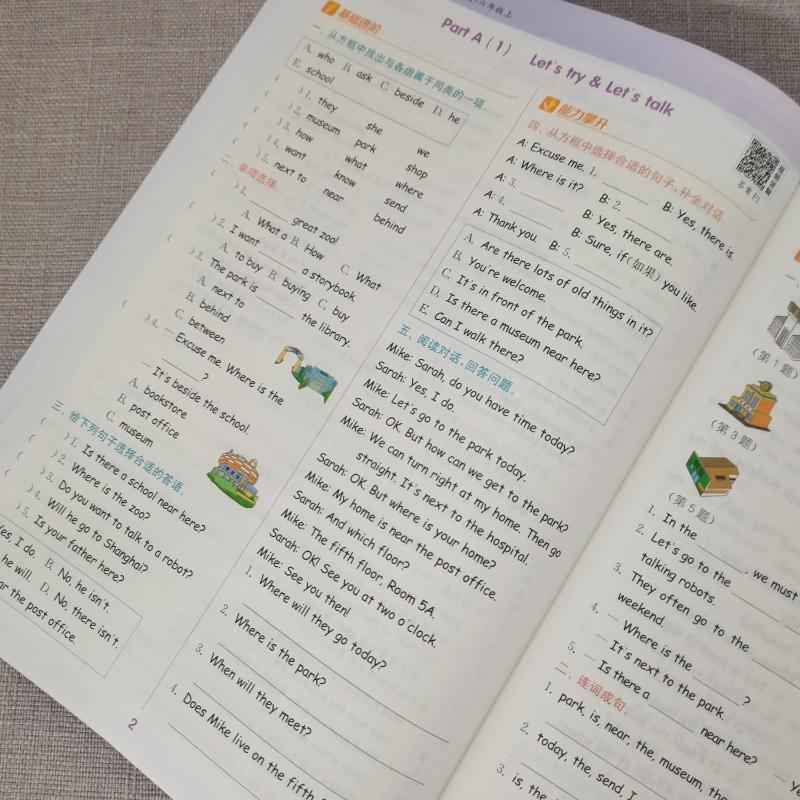 六年级上
Part A (1) Let's try & Let's talk
基础进阶
一、从方框中找出与各组属于同类的一项。
A. who B. ask C. beside D. he
E. school
( )1. they she we
( )2. museum park shop
( )3. how what where
( )4. want know send
( )5. next to near behind
二、单项选择。
( )1. ______ great zoo!
A. What a B. How C. What
( )2. I want ______ a storybook.
A. to buy B. buying C. buy
( )3. The park is ______ the library.
A. next to
B. behind
C. between
( )4. — Excuse me. Where is the
______?
— It's beside the school.
A. bookstore
B. post office
C. museum
三、给下列句子选择合适的答语。
( )1. Is there a school near here?
( )2. Where is the zoo?
( )3. Do you want to talk to a robot?
( )4. Will he go to Shanghai?
( )5. Is your father here?
Yes, I do. B. No, he isn't.
he will. D. No, there isn't.
the post office.
2
能力攀升
四、从方框中选择合适的句子,补全对话。
A: Excuse me. 1. ______ B: Yes, there is.
A: Where is it? B: 2. ______
A: 3. ______ B: Yes, there are.
A: 4. ______ B: Sure, if(如果) you like.
A: Thank you. B: 5. ______
A. Are there lots of old things in it?
B. You're welcome.
C. It's in front of the park.
D. Is there a museum near here?
E. Can I walk there?
五、阅读对话,回答问题。
Mike: Sarah, do you have time today?
Sarah: Yes, I do.
Mike: Let's go to the park today.
Sarah: OK. But how can we get to the park?
Mike: We can turn right at my home. Then go
straight. It's next to the hospital.
Sarah: OK. But where is your home?
Mike: My home is near the post office.
Sarah: And which floor?
Mike: The fifth floor, Room 5A.
Sarah: OK! See you at two o'clock.
Mike: See you then!
1. Where will they go today?
2. Where is the park?
3. When will they meet?
4. Does Mike live on the fifth
答案 P1
(第1题)
(第3题)
(第5题)
1. In the ______, we must
2. Let's go to the ______
talking robots.
3. They often go to the ______
weekend.
4. — Where is the ______?
— It's next to the park.
5. — Is there a ______ near here?
二、连词成句。
1. park, is, near, the, museum, the
2. today, the, send, I
3. is, the